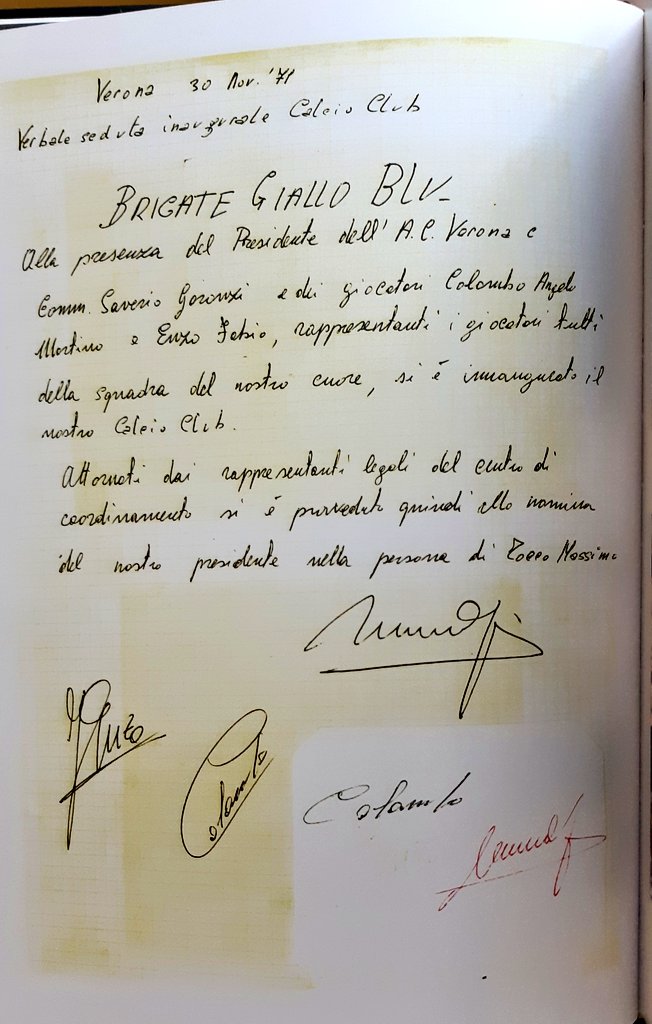 Verona 30 Nov. '71
Verbale seduta inaugurale Calcio Club
BRIGATE GIALLO BLU
Alla presenza del Presidente dell' A.C. Verona e
Comm. Saverio Garonzi e dei giocatori Colombo Angelo
Martino e Enzo Fabio, rappresentanti i giocatori tutti
della squadra del nostro cuore, si è innaugurato il
nostro Calcio Club.
Attorniati dai rappresentanti legali del centro di
coordinamento si è provveduto quindi alla nomina
del nostro presidente nella persona di Massimo
Enzo
Colombo
Colombo